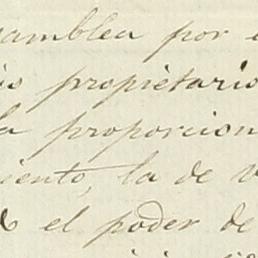 samblea por e
is propietario
la proporcion
iento, la de v
el poder de